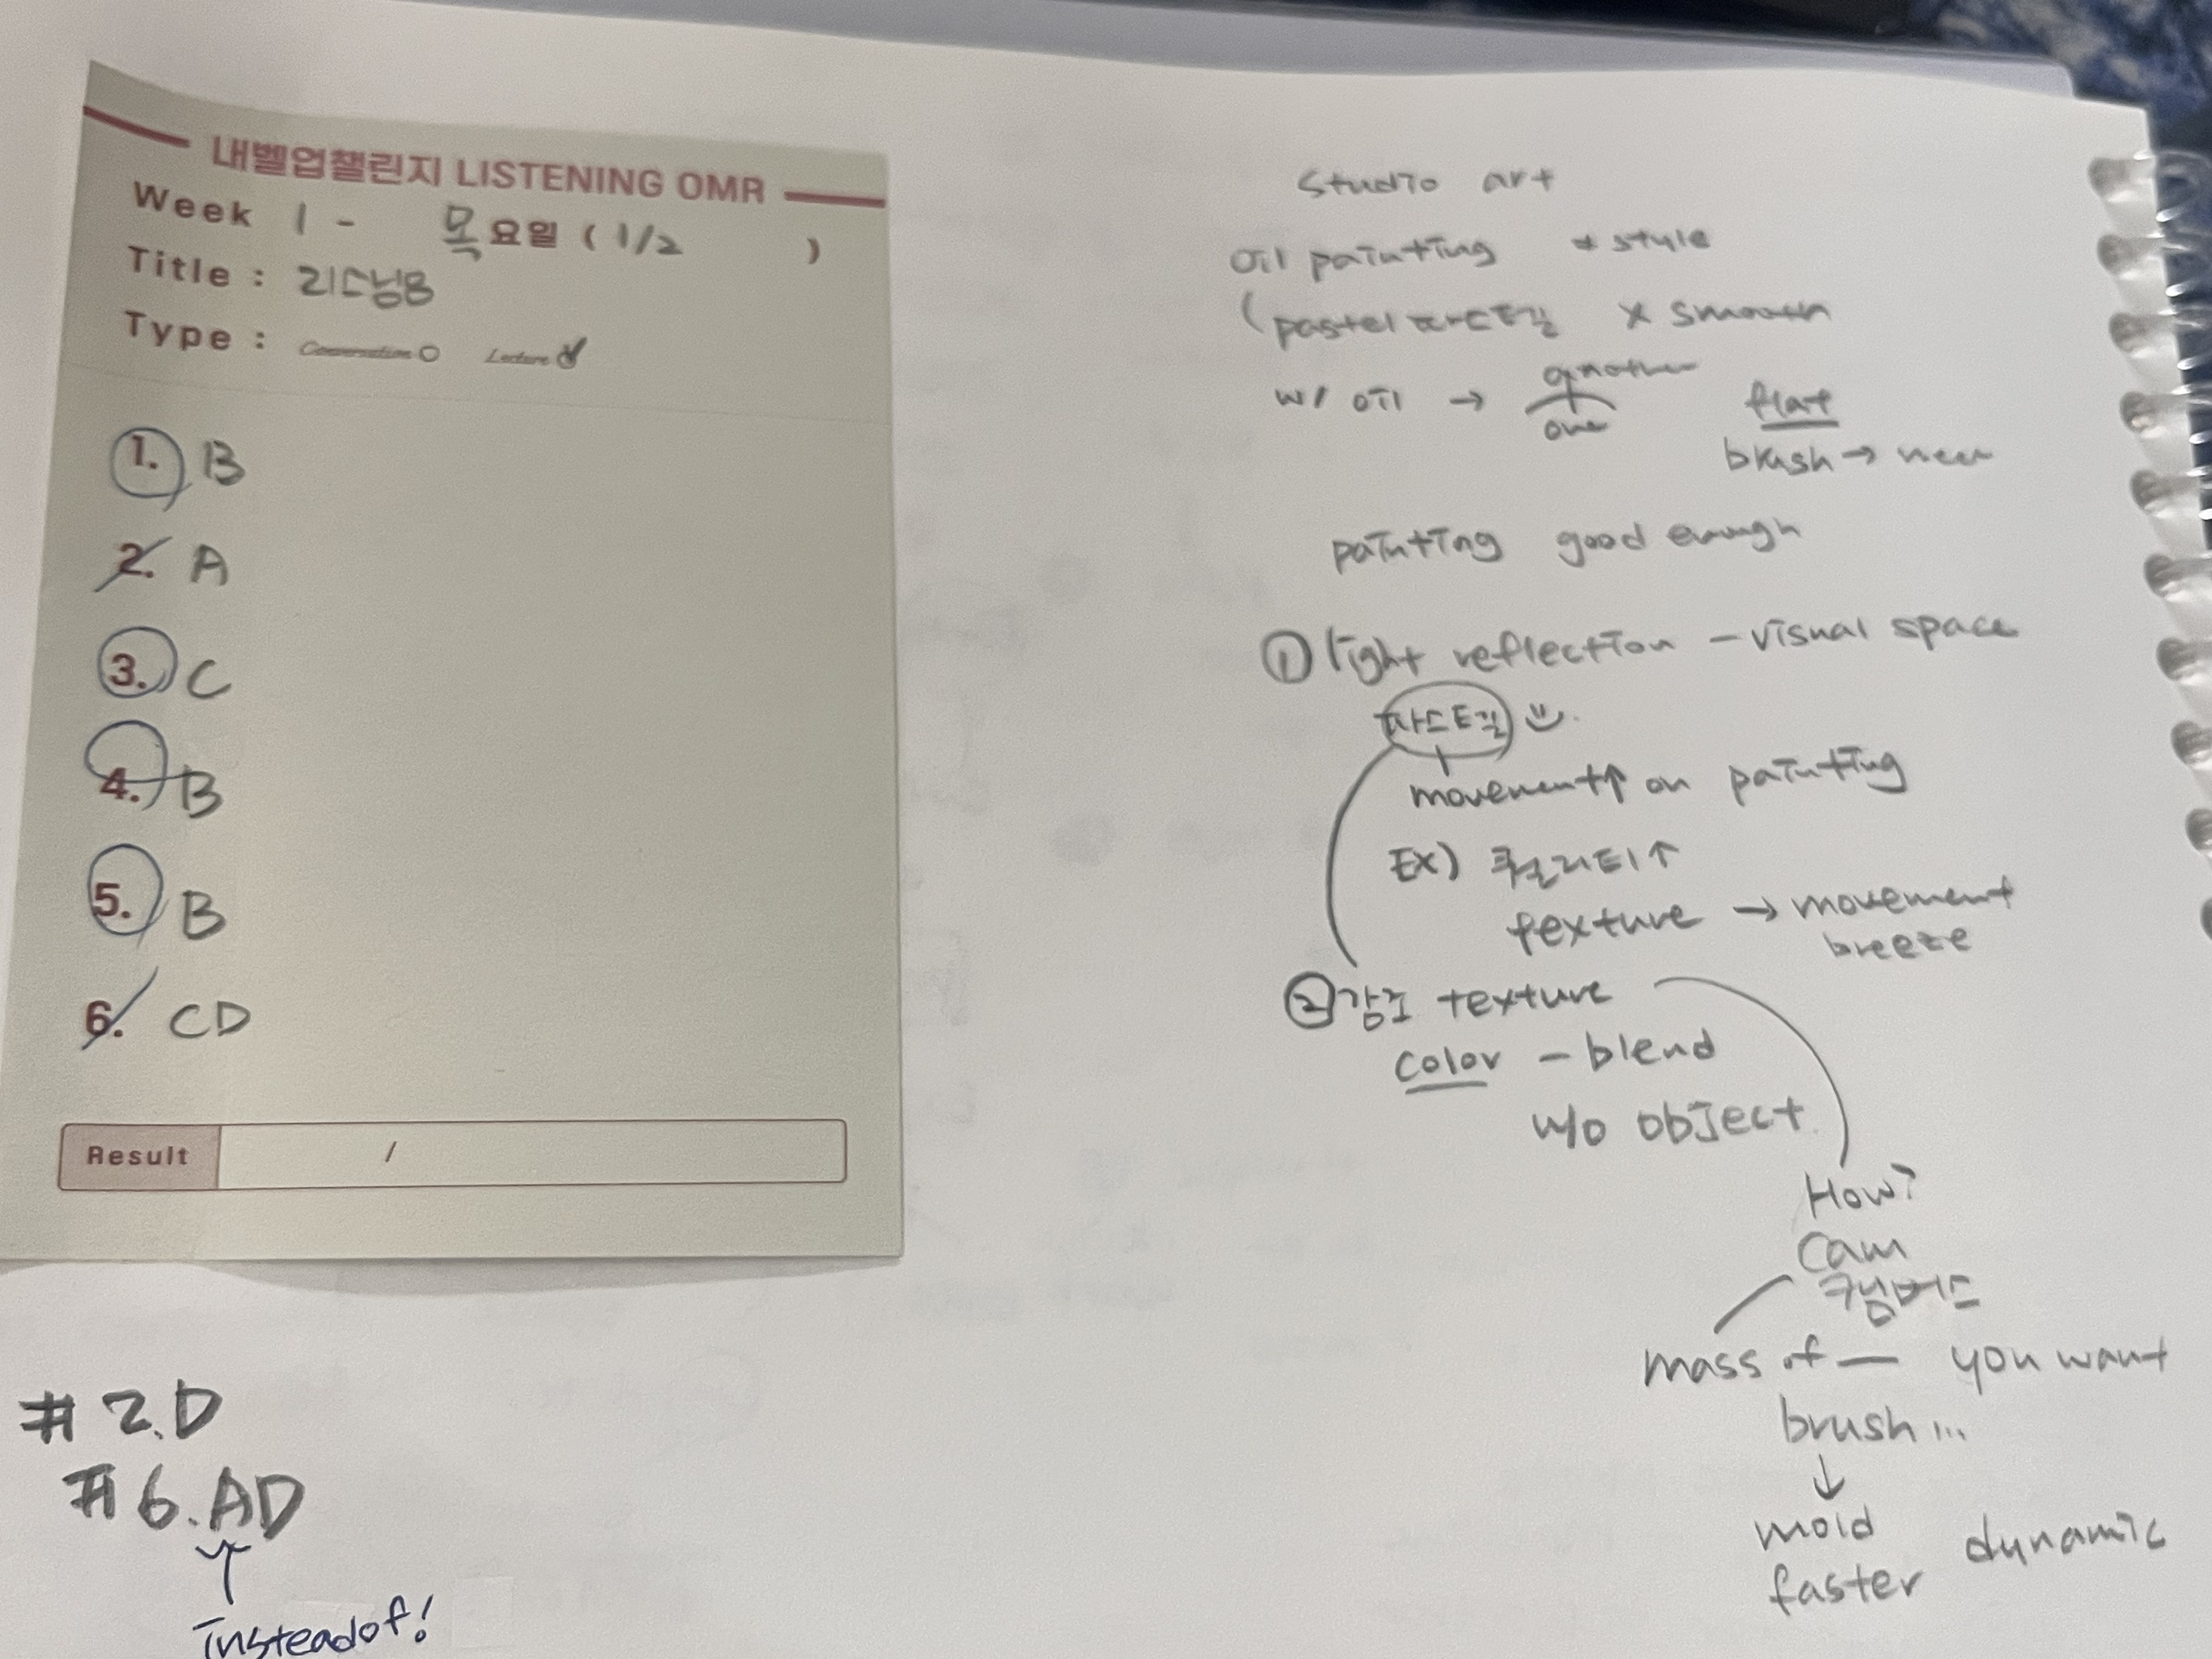 내벨업챌린지 LISTENING OMR
Week 1 - 목요일 ( 1/2 )
Title : 리스닝B
Type : Conversation Lecture
1. B
2. A
3. C
4. B
5. B
6. CD
Result /
#2.D
#6.AD
Insteadof!
studio art
oil painting * style
(pastel 파스텔 x smooth
w/ oil → another
one
flat
brush → new
painting good enough
① light reflection - visual space
movement↑ on painting
EX) 퀄리티↑
texture → movement
breeze
② 강조 texture
color - blend
w/o object
How?
Cam
캔버스
mass of — you want
brush ...
↓
mold
faster dynamic